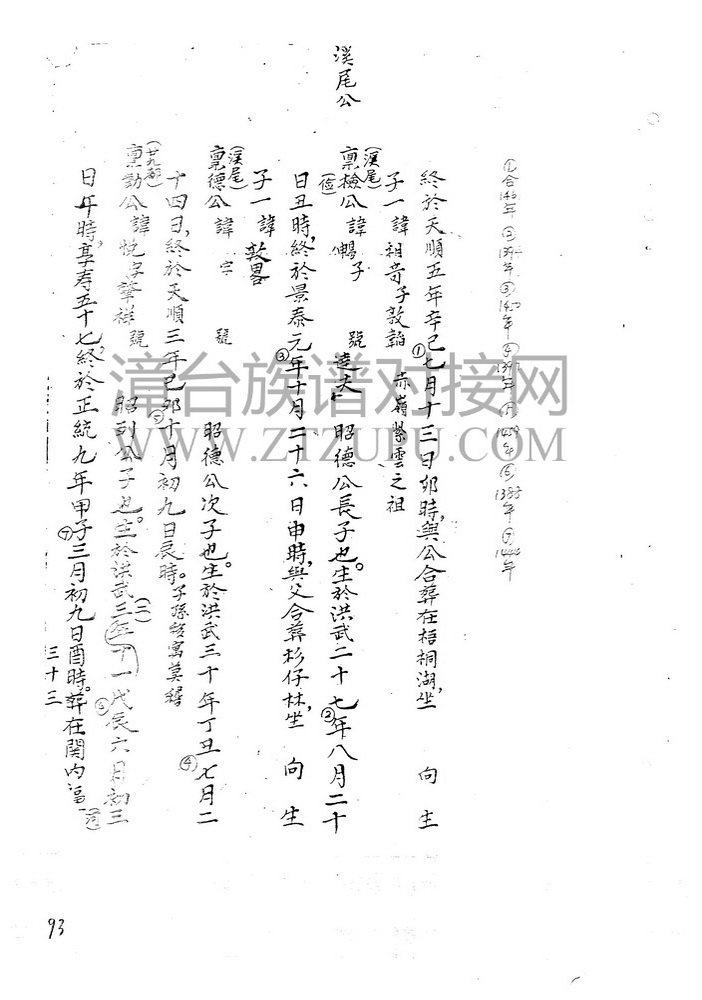 溪尾公
①合1461年 ②1394年 ③1450年 ④1397年 ⑤1459年 ⑥1388年 ⑦1444年
終於天順五年辛巳①七月十三日卯時,與公合葬在梧桐湖,坐 向 生
子一諱祖 子敦 赤嶺 雲之祖
(溪尾)稟檢(儉)公諱 子 號達夫 昭德公長子也。生於洪武二十七年②八月二十
日丑時,終於景泰元年③十月二十六日申時,與父合葬杉仔林,坐 向 生
子一諱敦畧
(溪尾)稟德公諱 字 號 昭德公次子也。生於洪武三十年丁丑④七月二
十四日,終於天順三年己卯⑤十月初九日辰時。子孫 寓莫稽
(廿九都)稟訪公諱悅字肇祥號 昭列公子也。生於洪武三(二)年十一戊辰⑥六月初三
日年時,享寿五十七,終於正統九年甲子⑦三月初九日酉時。葬在関内 (河)
三十三
93
漳台族谱对接网
WWW.ZTZUPU.COM